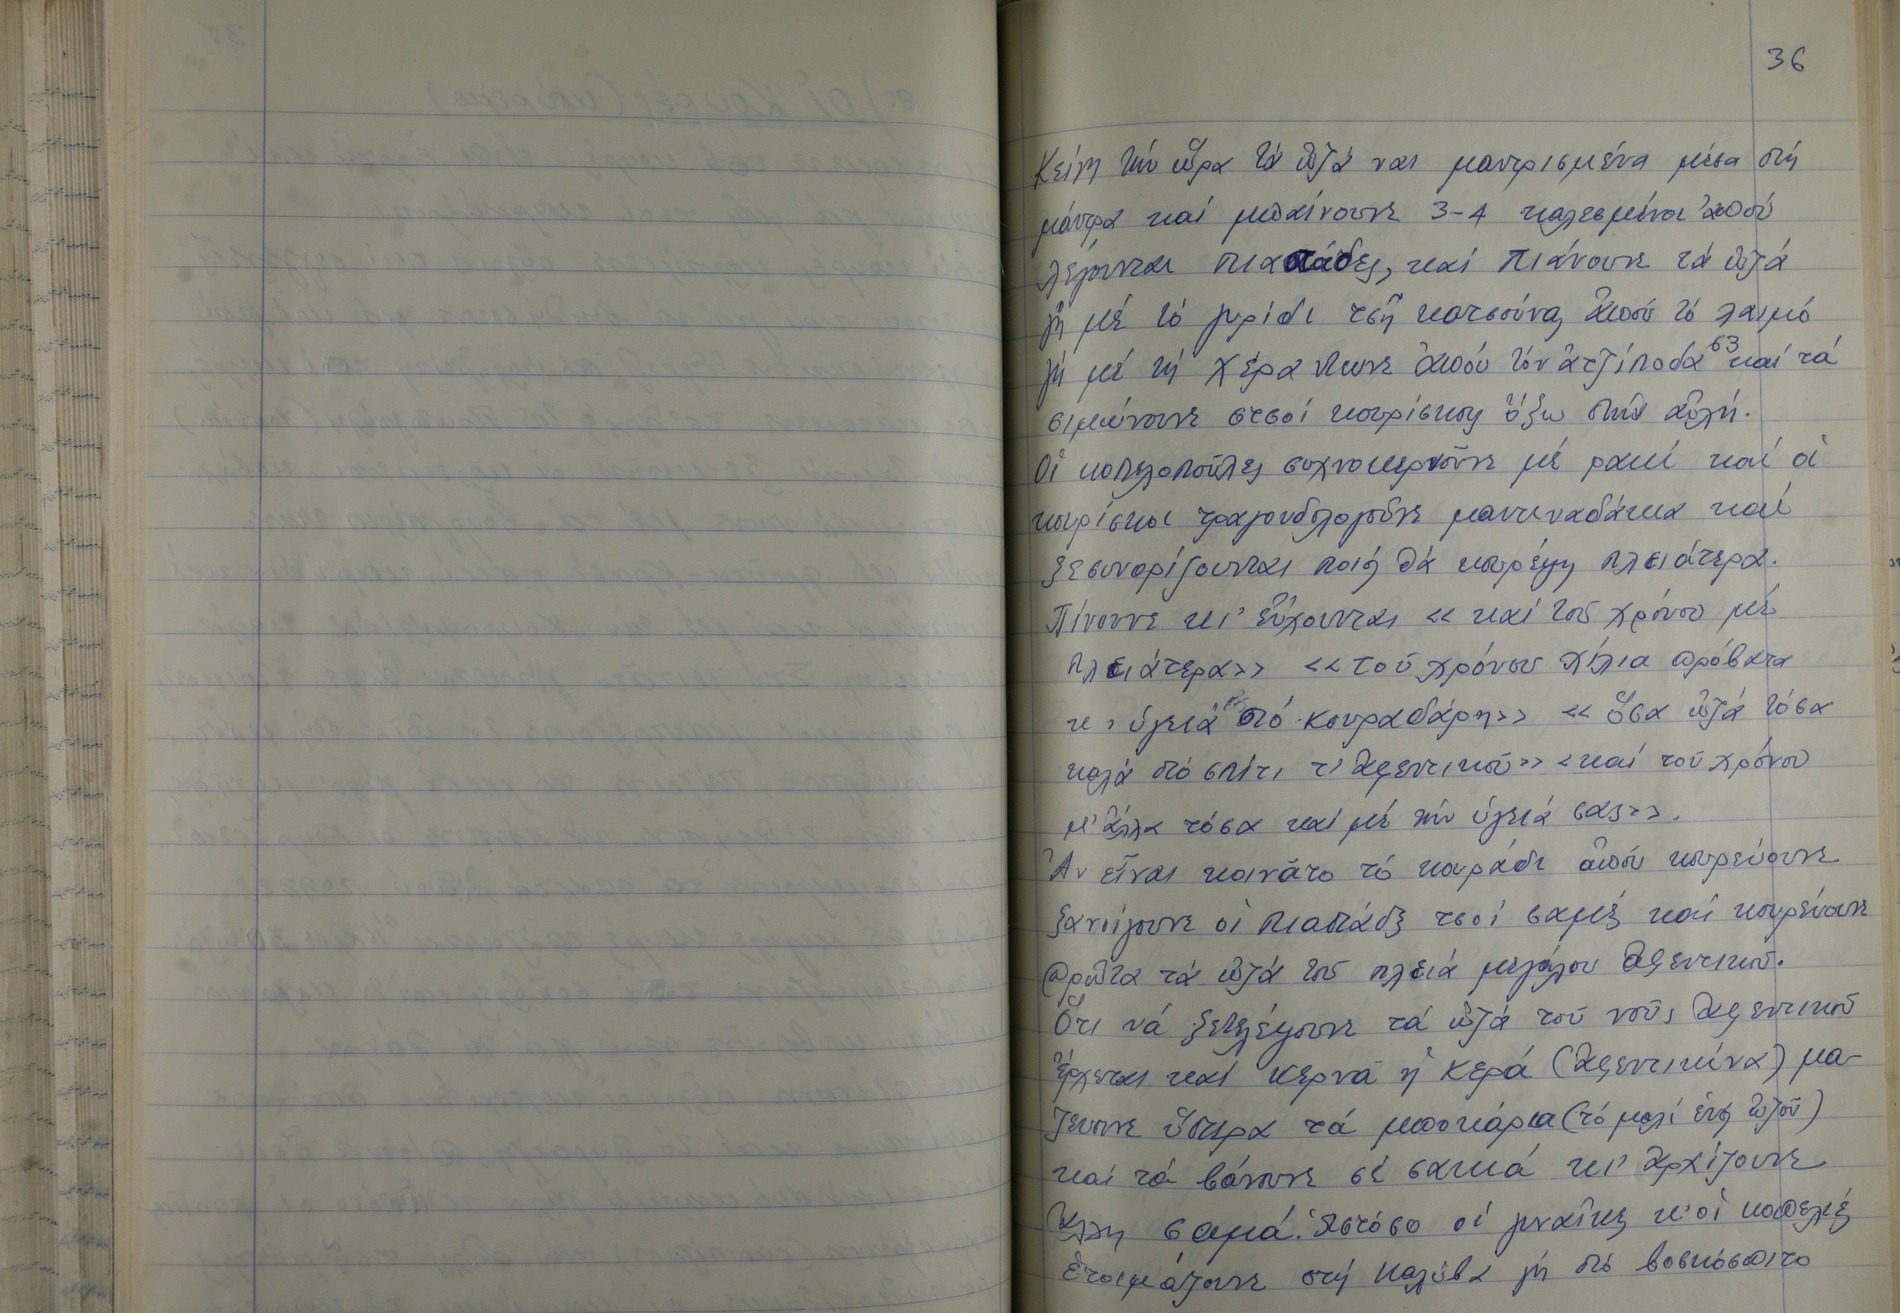 36
Κείνη τήν ὥρα τά ὠζά ναι μαντρισμένα μέσα στή
μάντρα καί μπαίνουνε 3-4 καλεσμένοι ἀπού
λέγουνται πιαστάδες, καί πιάνουνε τά ὠζά
γῆ μέ τό γυρίδι τσῆ κατσούνας ἀπού τό λαιμό
γῆ μέ τή χέρα ντωνε ἀπού τόν ἀτζίποδα⁶³ καί τά
σιμώνουνε στσοί κουρίσκους ὄξω στήν αὐλή.
Οἱ κοπελοποῦλες συχνοκερνοῦνε μέ ρακί καί οἱ
κουρίσκοι τραγουδολογοῦνε μαντιναδάκια καί
ξεσυνορίζουνται ποιός θά κουρέψη πλειάτερα.
Πίνουνε κι' εὔχουνται « καί τοῦ χρόνου μέ
πλειάτερα» «τοῦ χρόνου χίλια πρόβατα
κ' ὑγειά στό κουραδάρη» « ὅσα ὠζά τόσα
καλά στό σπίτι τ' ἀφεντικοῦ» «καί τοῦ χρόνου
μ' ἄλλα τόσα καί μέ τήν ὑγειά σας».
Ἄν εἶναι κοινάτο τό κουράδι ἀπού κουρεύουνε
ξανοίγουνε οἱ πιαστάδες τσοί σαμές καί κουρεύουνε
πρῶτα τά ὠζά τοῦ πλειά μεγάλου ἀφεντικοῦ.
Ὅτι νά ξετελέψουνε τά ὠζά τοῦ νοῦς ἀφεντικοῦ
ἔρχεται καί κερνᾶ ἡ κερά (ἀφεντικίνα) μα-
ζεύουνε ὕστερα τά μποκάρια (τό μαλί ἑνός ὠζοῦ)
καί τά βάνουνε σέ σακιά κι' ἀρχίζουνε
ἄλλη σαμά. Ὡστόσο οἱ γυναῖκες κ' οἱ κοπελιές
ἑτοιμάζουνε στή καλύβα γῆ στό βοσκόσπιτο